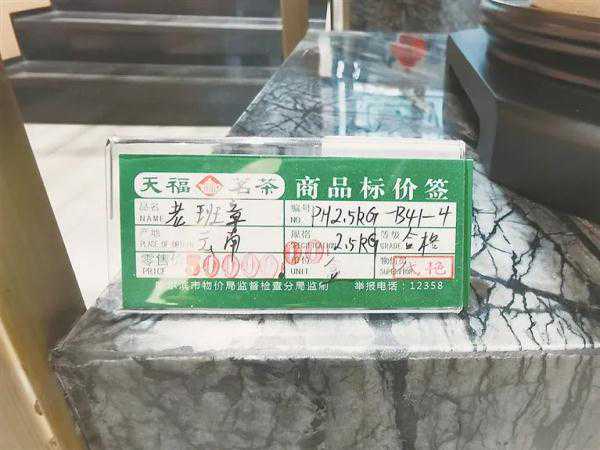 天福 茗茶 商品标价签
品名 NAME 老班章 编号 NO. PH2.5KG-B41-4
产地 PLACE OF ORIGIN 云南 规格 2.5KG 等级 GRADE 合格
零售价 PRICE 50000.00 单位 UNIT 盒 物价员
哈尔滨市物价局监督检查分局监制 举报电话：12358